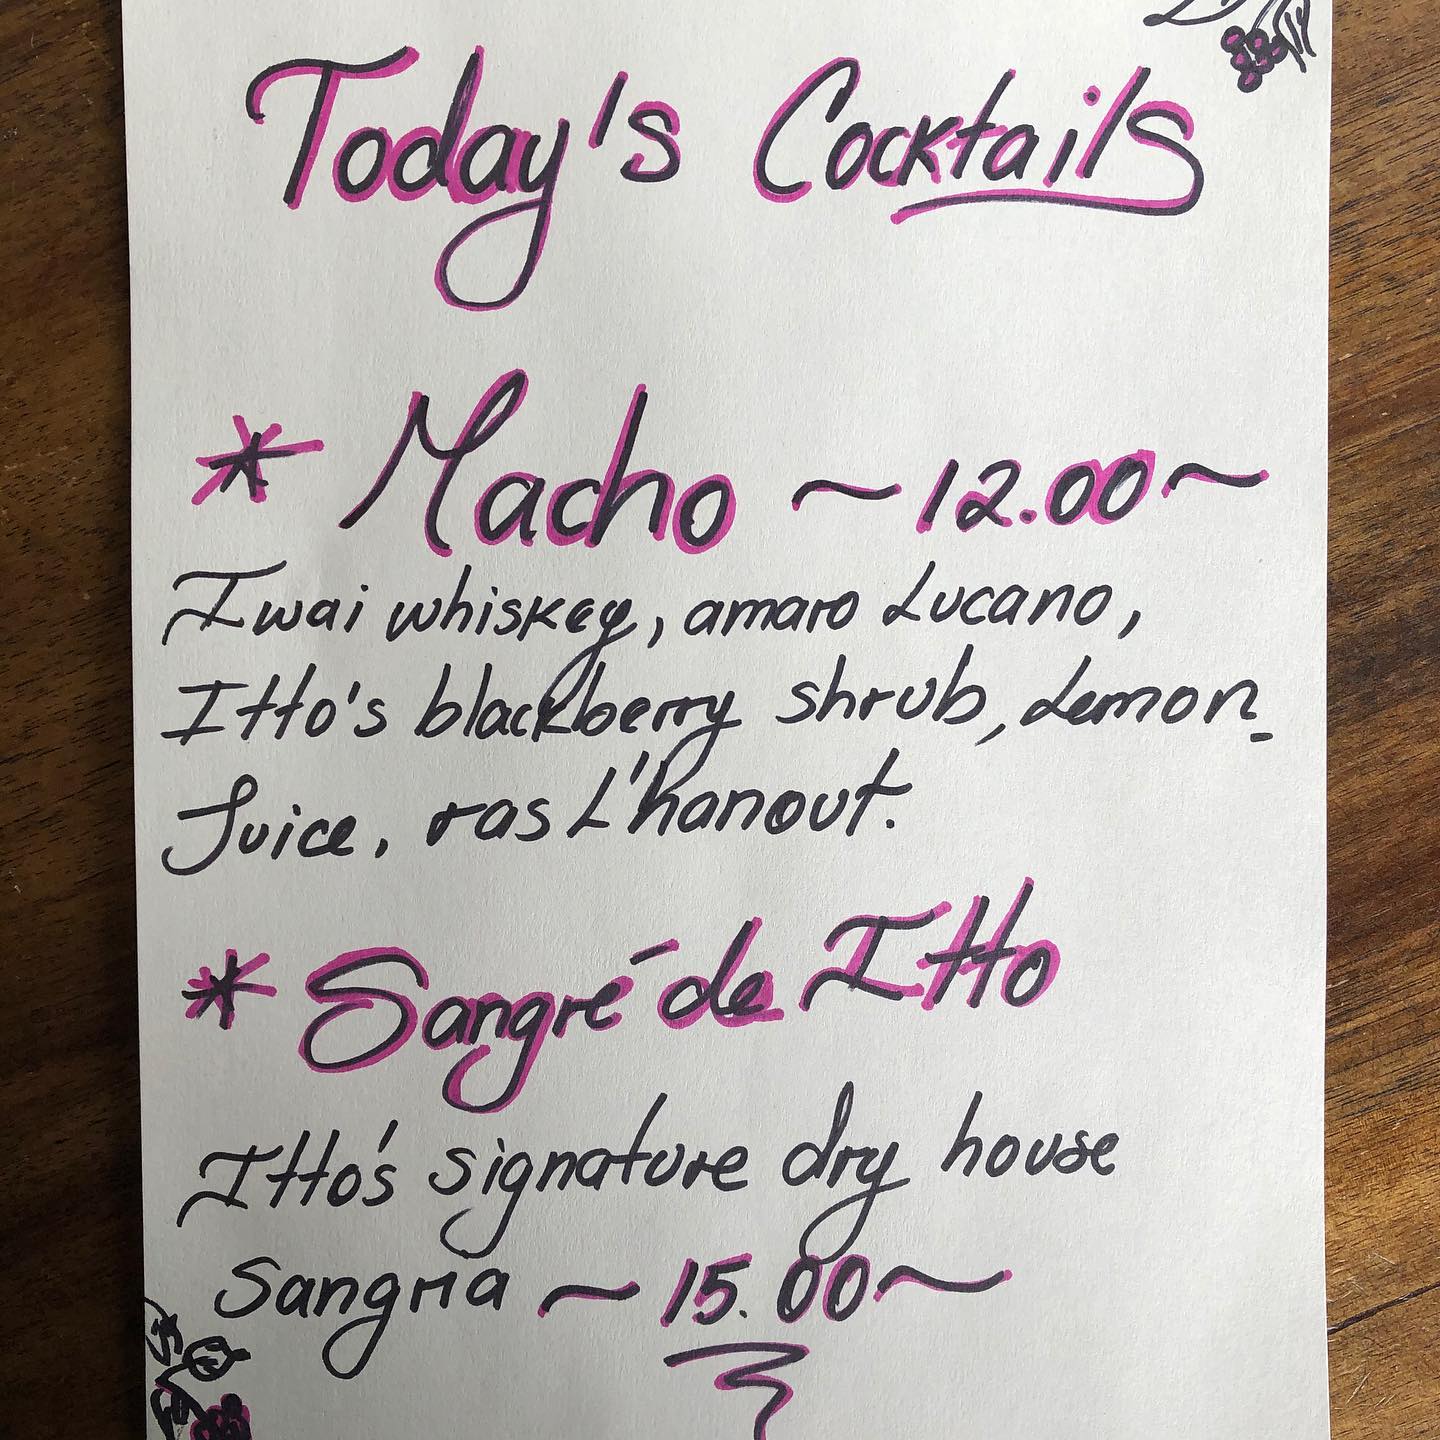 Today's Cocktails
* Macho ~ 12.00 ~
Iwai whiskey, amaro Lucano,
Itto's blackberry shrub, Lemon
Juice, ras L'hanout.
* Sangré de Itto
Itto's signature dry house
Sangria ~ 15.00 ~